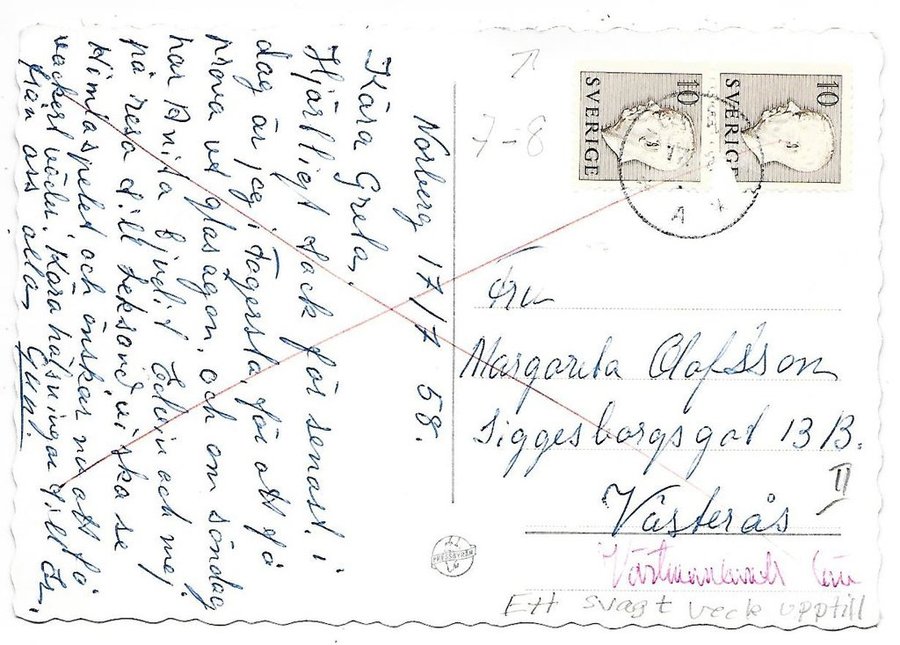 Norberg 17/7 58.
Kära Greta,
Hjärtligt tack för senast. i
dag är jag i Fagersta, för att få
prova ut glasögon, och om söndag
har Anita bjudit Edvin och mej
på resa till Leksand vi ska se
Himlaspelet och önskar nu att få
vackert väder. Kära hälsningar till Er,
från oss alla, Gun.
7-8
10
SVERIGE
10
SVERIGE
Fru
Margareta Olofsson
Siggesborgsgat 13 B.
II
Västerås
Västmanlands län
PRESSBYRÅN
Ett svagt veck upptill